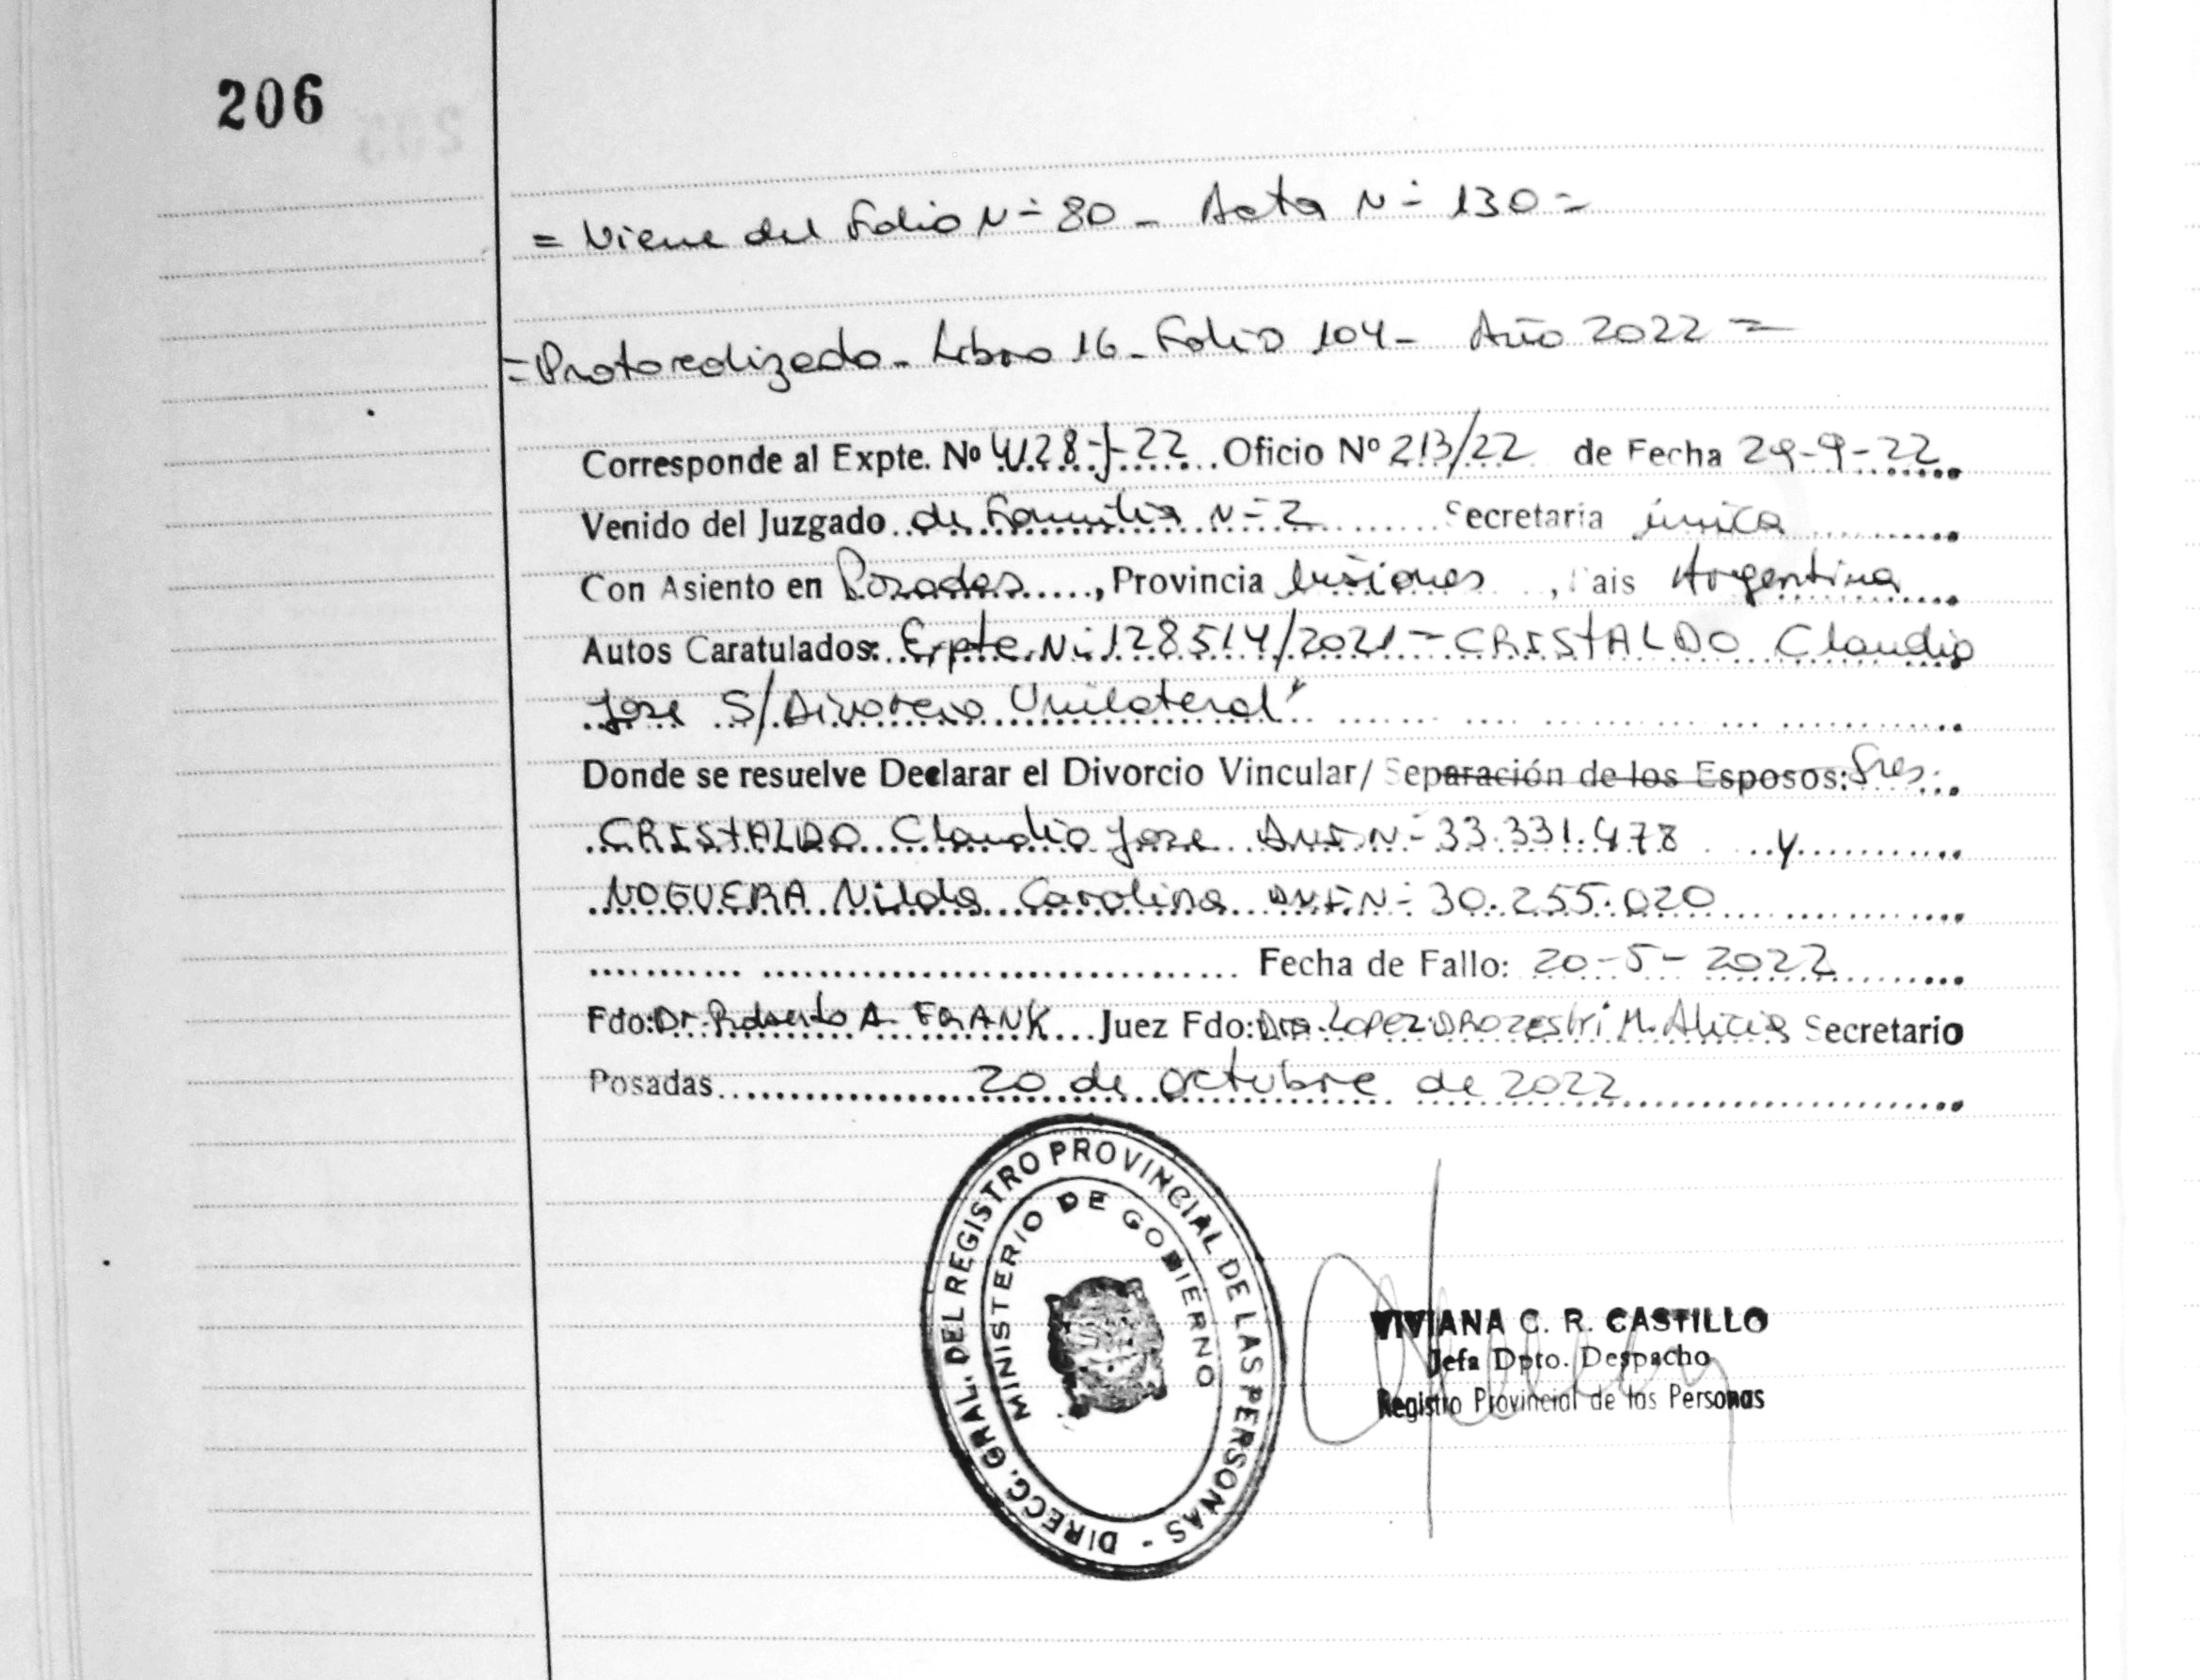 206
= Viene del Folio N÷ 80 - Acta N÷ 130 =
= Protocolizado - Libro 16 - Folio 104 - Año 2022 =
Corresponde al Expte. Nº 4128-J-22 Oficio Nº 213/22 de Fecha 29-9-22
Venido del Juzgado de Familia N÷ 2 Secretaria única
Con Asiento en Posadas, Provincia Misiones, Pais Argentina
Autos Caratulados: Expte. N÷ 128514/2021 - CRISTALDO Claudio
Jose S/ Divorcio Unilateral"
Donde se resuelve Declarar el Divorcio Vincular/ Separación de los Esposos: Sres.
CRISTALDO Claudio Jose DNI N÷ 33.331.478 y
NOGUERA Nilda Carolina DNI N÷ 30.255.020
Fecha de Fallo: 20-5-2022
Fdo: Dr. Roberto A. FRANK Juez Fdo: Dra. LOPEZ M. Alicia Secretario
Posadas 20 de octubre de 2022
DIRECC. GRAL. DEL REGISTRO PROVINCIAL DE LAS PERSONAS -
MINISTERIO DE GOBIERNO
VIVIANA C. R. CASTILLO
Jefa Dpto. Despacho
Registro Provincial de las Personas